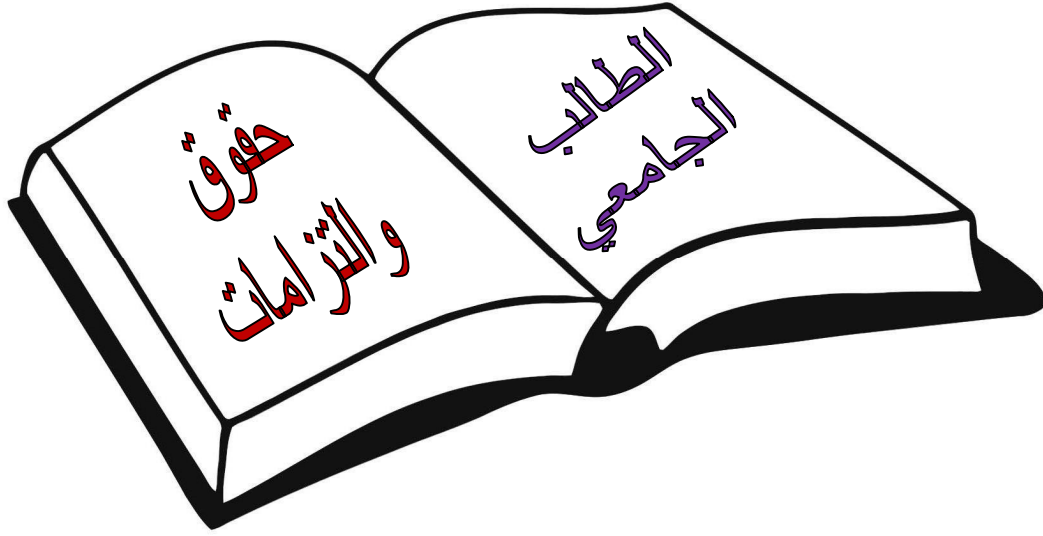 الطالب
الجامعي
حقوق
و التزامات